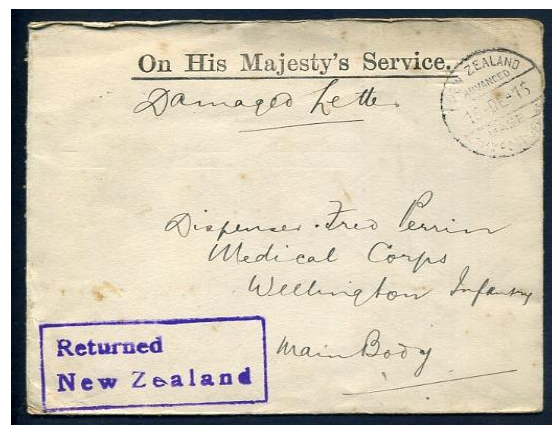 On His Majesty's Service.
Damaged Letter
ZEALAND
ADVANCED
BASE
Dispenser Fred Perrin
Medical Corps
Wellington Infantry
Main Body
Returned
New Zealand